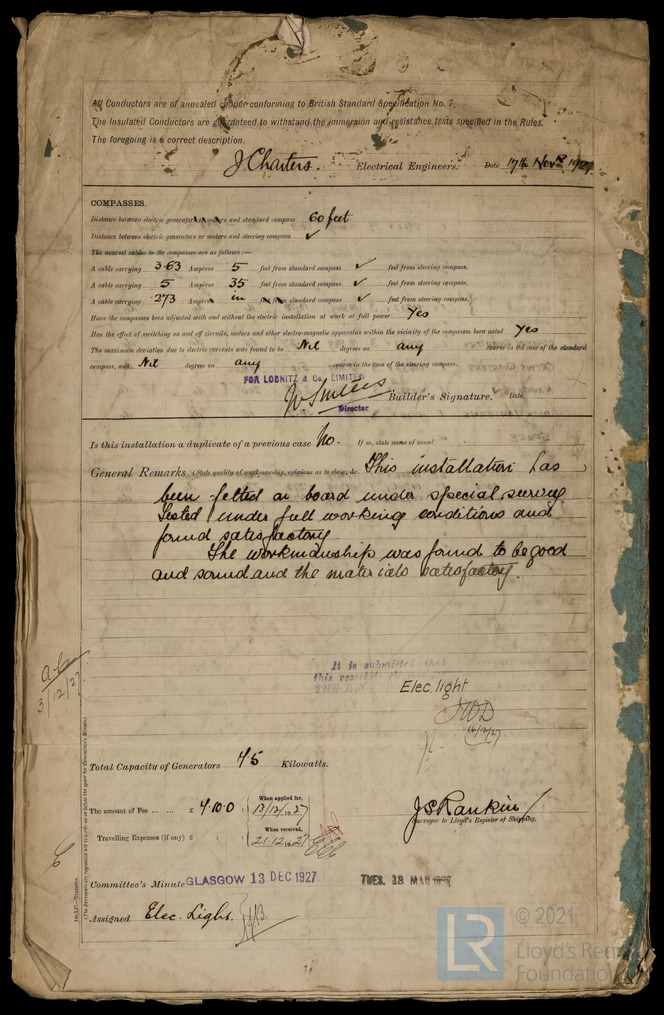 All Conductors are of annealed copper conforming to British Standard Specification No. 7.
The Insulated Conductors are guaranteed to withstand the immersion and resistance tests specified in the Rules.
The foregoing is a correct description.
J Charters. Electrical Engineers. Date 17th Novr 1927
COMPASSES.
Distance between electric generators or motors and standard compass 60 feet
Distance between electric generators or motors and steering compass ✓
The nearest cables to the compasses are as follows:—
A cable carrying 3.63 Ampères 5 feet from standard compass ✓ feet from steering compass.
A cable carrying 5 Ampères 35 feet from standard compass ✓ feet from steering compass.
A cable carrying .273 Ampères in feet from standard compass ✓ feet from steering compass.
Have the compasses been adjusted with and without the electric installation at work at full power Yes
Has the effect of switching on and off circuits, motors and other electro-magnetic apparatus within the vicinity of the compasses been noted Yes
The maximum deviation due to electric currents was found to be Nil degrees on any course in the case of the standard
compass, and Nil degrees on any course in the case of the steering compass.
FOR LOBNITZ & Co. LIMITED
Director Builder's Signature. Date
Is this installation a duplicate of a previous case No. If so, state name of vessel
General Remarks (State quality of workmanship, opinions as to class, &c. This installation has
been fitted on board under special survey
Tested under full working conditions and
found satisfactory.
The workmanship was found to be good
and sound and the materials satisfactory.
It is submitted that
this vessel
Elec. light
JWD
16/12/27
3/12/27
Total Capacity of Generators 45 Kilowatts.
The amount of Fee ... ... £ 4.10.0 When applied for, 13/12/1927
Travelling Expenses (if any) £ When received, 21.12.1927
J S Rankin
Surveyor to Lloyd's Register of Shipping.
Committee's Minute GLASGOW 13 DEC 1927 TUES. 13 MAR 1928
Assigned Elec. Light.
1m.1.27.—Transfer.
© 2021
LR Lloyd's Register
Foundation